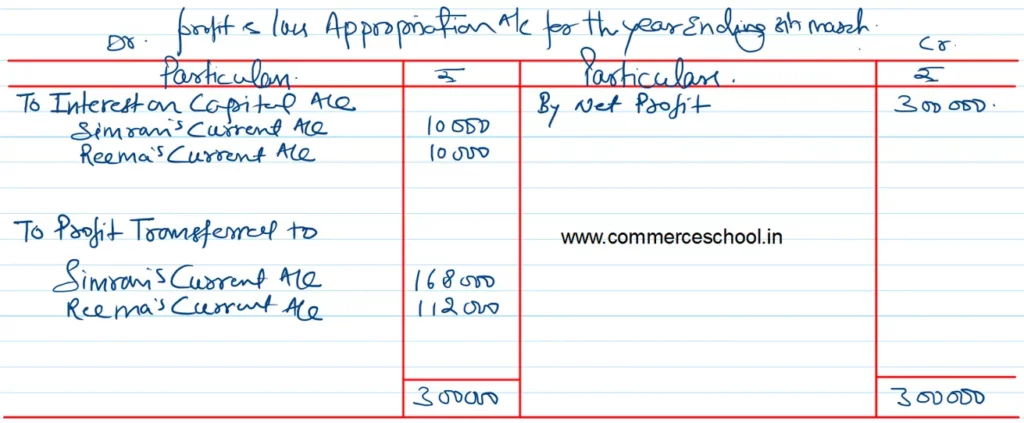 Profit & Loss Appropriation A/c for th year Ending 31th March.
Dr. Cr.
Particulars. ₹ Particulars. ₹
To Interest on Capital A/c By Net Profit 300000.
Simran's Current A/c 10000
Reema's Current A/c 10000
To Profit Transferred to
www.commerceschool.in
Simran's Current A/c 168000
Reema's Current A/c 112000
300000 300000